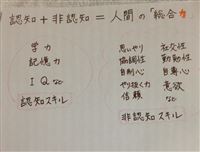 認知 + 非認知 = 人間の「総合力」
学力
記憶力
IQ など
認知スキル
思いやり 社交性
協調性 勤勉性
自制心 自尊心
やり抜く力 意欲
信頼 など
非認知スキル